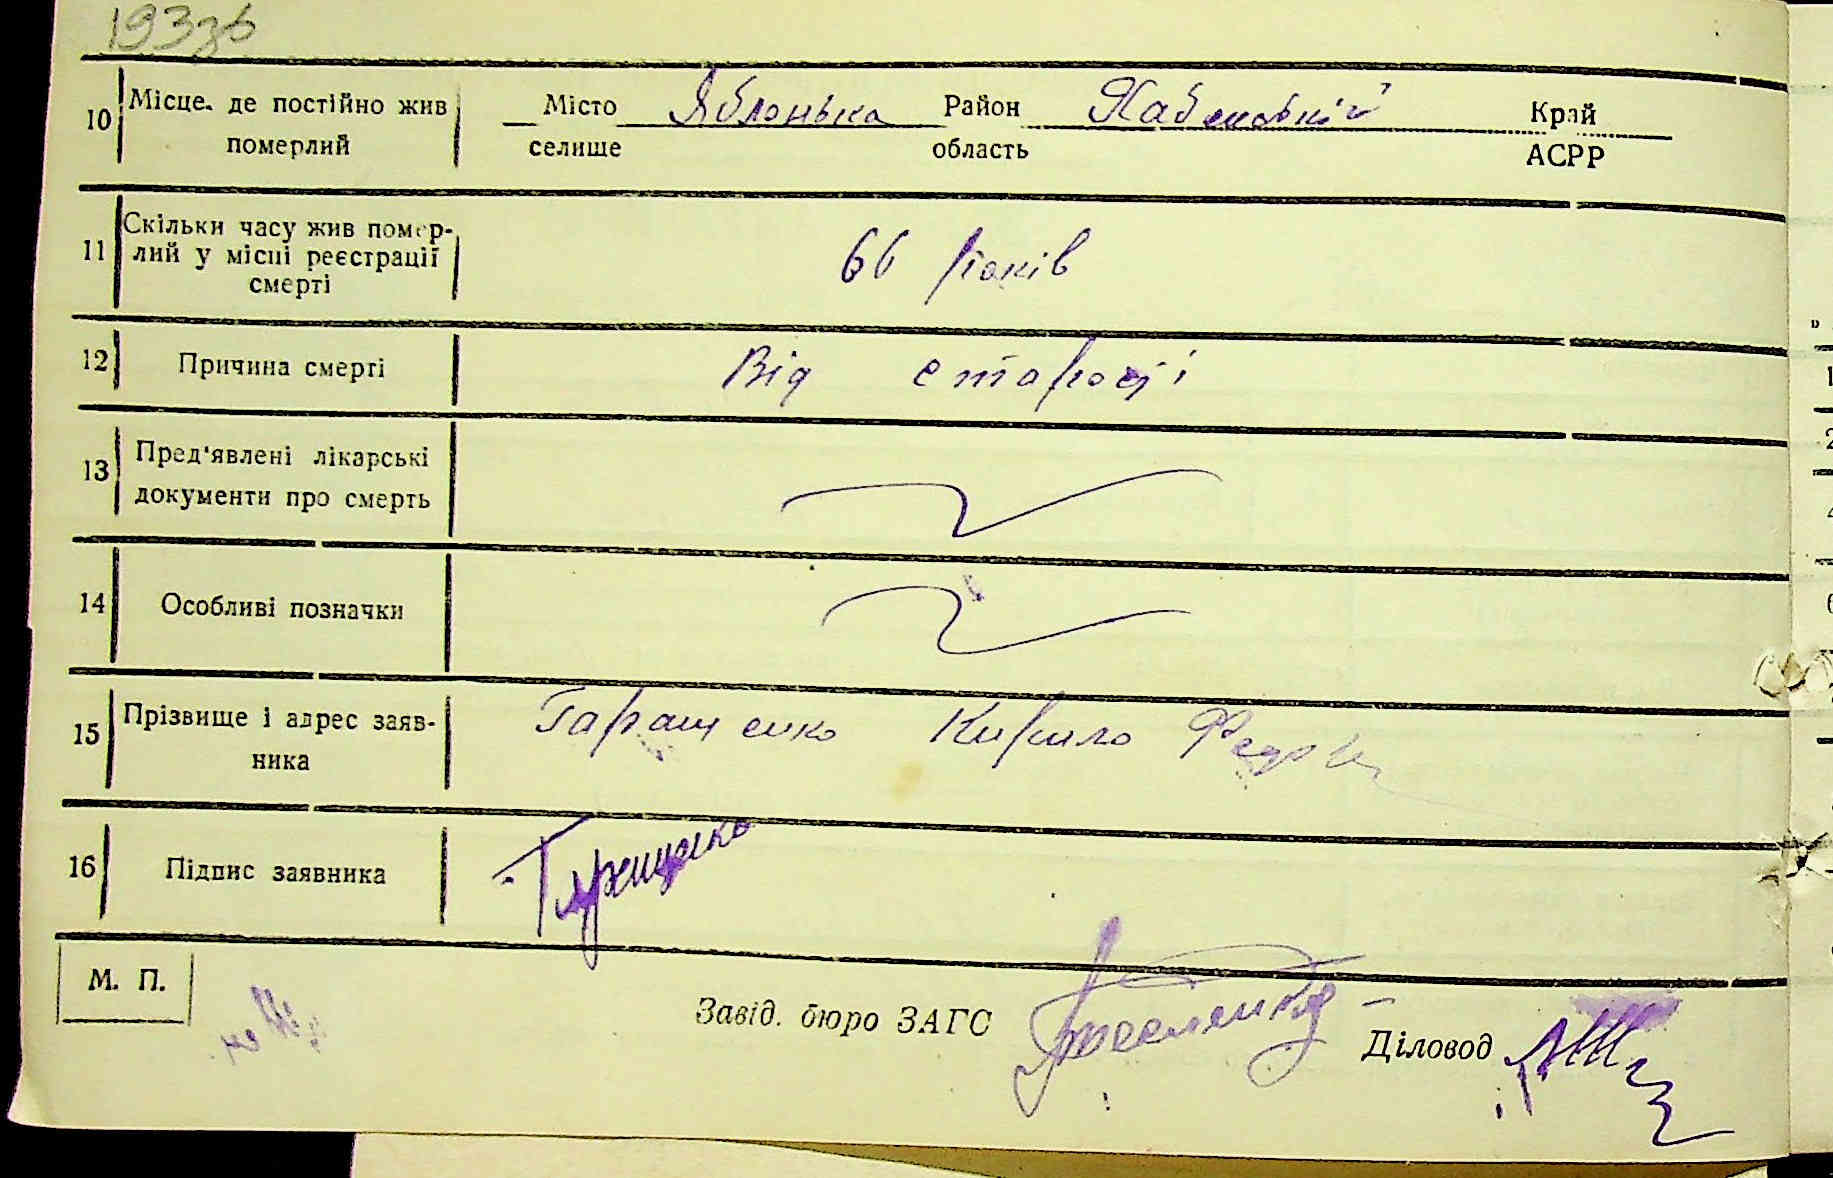 193зв
10 Місце. де постійно жив Місто Яблонька Район Хабенський Край
померлий селище область АСРР
11 Скільки часу жив помер-
лий у місці реєстрації
смерті 66 років
12 Причина смерті Від старості
13 Пред'явлені лікарські
документи про смерть
14 Особливі позначки
15 Прізвище і адрес заяв-
ника Гаращенко Кирило
16 Підпис заявника Гаращенко
М. П.
Завід. бюро ЗАГС
Діловод